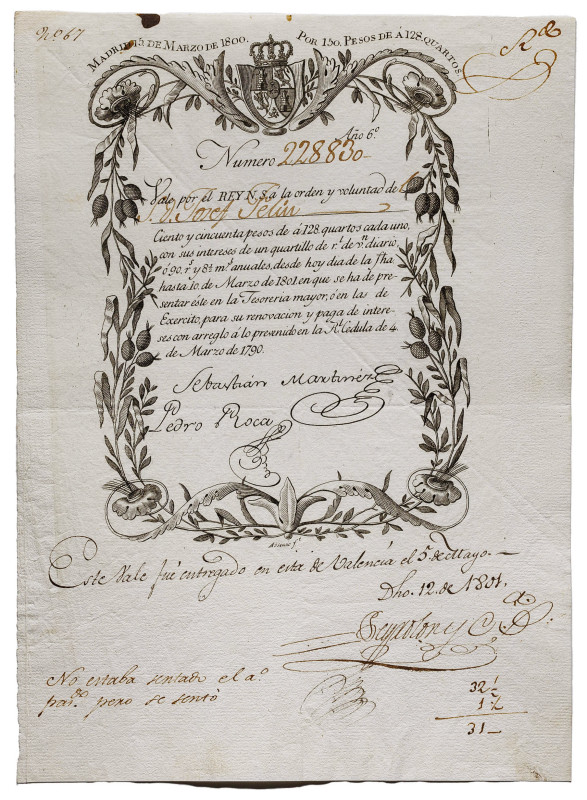 Nº. 67
MADRID 15 DE MARZO DE 1800. POR 150. PESOS DE Á 128. QUARTOS.
Rdo
Año 6º
Numero 22883
Vale por el REY N. S. a la orden y voluntad de
Josef Feliu
Ciento y cincuenta pesos de á 128. quartos cada uno,
con sus intereses de un quartillo de rl. de vn. diario,
ó 90. rs. y 8½ ms. anuales, desde hoy dia de la fha.
hasta 10. de Marzo de 1801. en que se ha de pre-
sentar éste en la Tesoreria mayor, ó en las de
Exercito, para su renovacion y paga de intere-
ses con arreglo á lo prevenido en la Rl. Cedula de 4.
de Marzo de 1790.
Sebastián Martinez
Pedro Roca
Este Vale fué entregado en esta de Valencia el 5. de Mayo.
Dho. 12. de 1801.
No estaba sentado el aº.
pasdo. pero se sentó
32½
1½
31